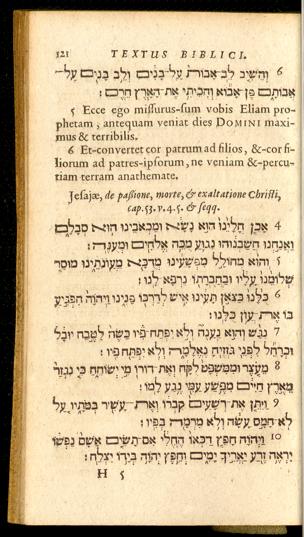 121 TEXTUS BIBLICI.
6 והשיב לב־אבות על־בנים ולב בנים על־
אבותם פן־אבוא והכיתי את־הארץ חרם:
5 Ecce ego missurus-sum vobis Eliam pro-
phetam, antequam veniat dies DOMINI maxi-
mus & terribilis.
6 Et-convertet cor patrum ad filios, &-cor fi-
liorum ad patres-ipsorum, ne veniam &-percu-
tiam terram anathemate.
Jesajæ, de passione, morte, & exaltatione Christi,
cap. 53. v. 4. 5. & seqq.
4 אכן חלינו הוא נשא ומכאבינו הוא סבלם
ואנחנו חשבנוהו נגוע מכה אלהים ומענה:
5 והוא מחולל מפשעינו מדכא מעונתינו מוסר
שלומנו עליו ובחברתו נרפא לנו:
6 כלנו כצאן תעינו איש לדרכו פנינו ויהוה הפגיע
בו את עון כלנו:
7 נגש והוא נענה ולא יפתח פיו כשה לטבח יובל
וכרחל לפני גוזזיה נאלמה ולא יפתח פיו:
8 מעצר וממשפט לקח ואת דורו מי ישוחח כי נגזר
מארץ חיים מפשע עמי נגע למו:
9 ויתן את־רשעים קברו ואת־עשיר במתיו על
לא־חמס עשה ולא מרמה בפיו:
10 ויהוה חפץ דכאו החלי אם־תשים אשם נפשו
יראה זרע יאריך ימים וחפץ יהוה בידו יצלח:
H 5